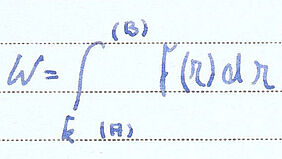 W = ∫ (A) (B) f(r) dr